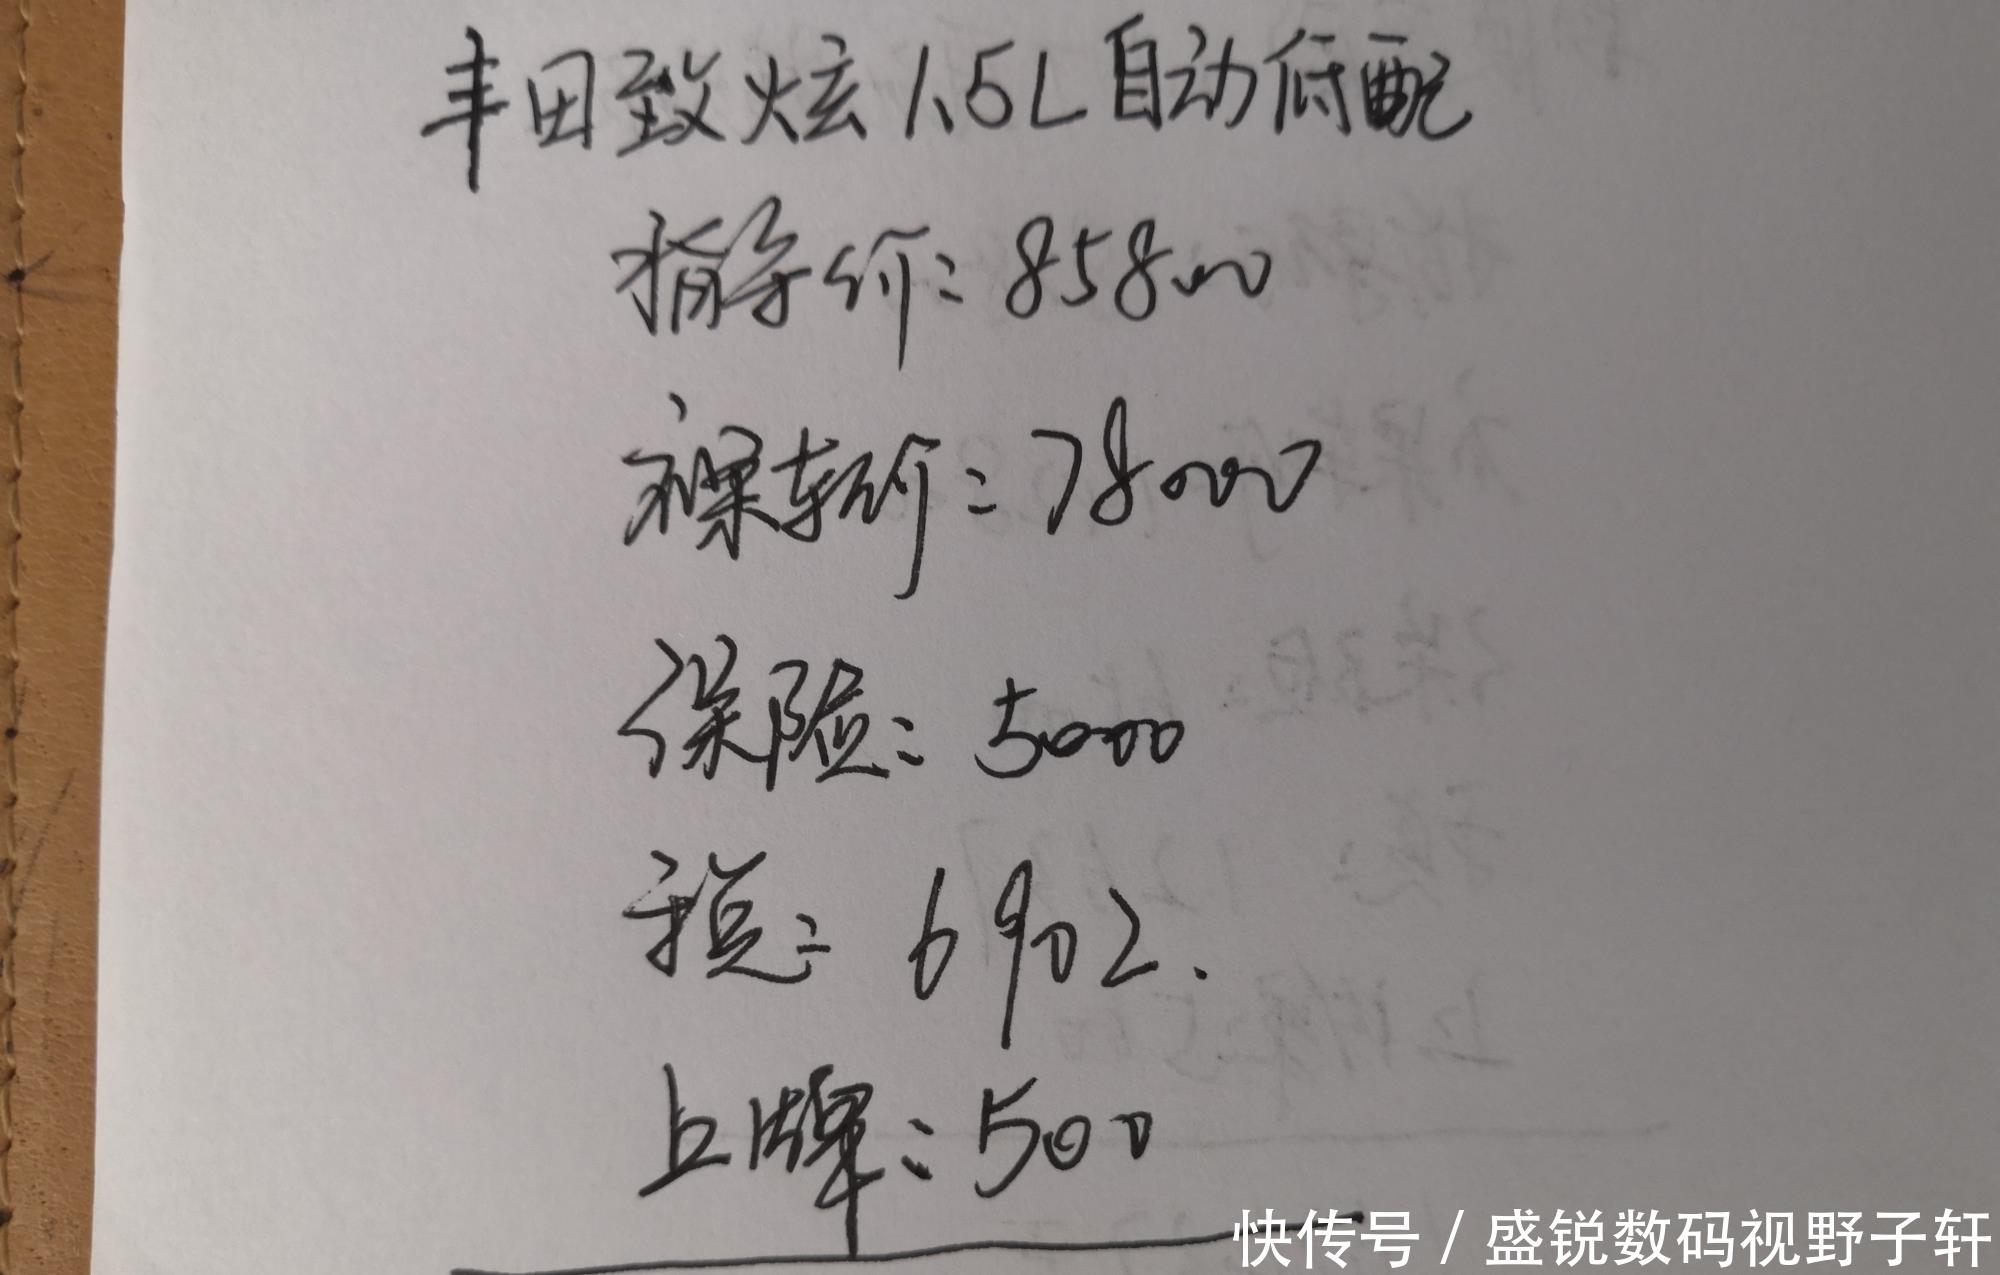 丰田致炫1.5L自动低配
指导价：85800
裸车价：78000
保险：5000
税：6902.
上牌：500
快传号 / 盛锐数码视野子轩